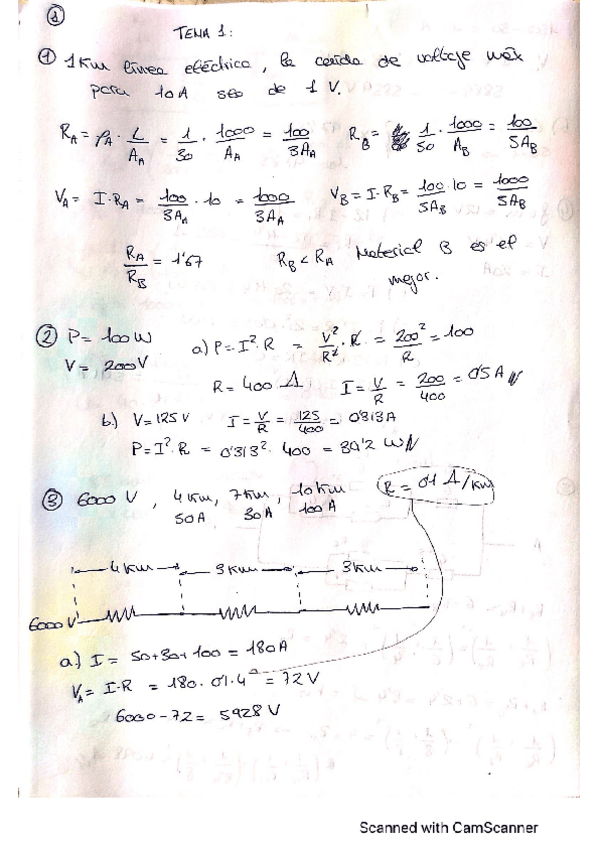 1
TEMA 1:
① 1 Km línea eléctrica, la caída de voltaje máx
para 10A sea de 1 V.
R_A = ρ_A · L/A_A = 1/30 · 1000/A_A = 100/3A_A   R_B = 1/50 · 1000/A_B = 100/5A_B
V_A = I·R_A = 100/3A_A · 10 = 1000/3A_A   V_B = I·R_B = 100/5A_B · 10 = 1000/5A_B
R_A/R_B = 1'67   R_B < R_A Material B es el
mejor.
② P = 100W   a) P = I²·R = V²/R² · R = 200²/R = 100
V = 200V
R = 400 Ω   I = V/R = 200/400 = 0'5 A
b) V = 125 V   I = V/R = 125/400 = 0'313A
P = I²·R = 0'313² · 400 = 39'2 W
③ 6000 V, 4 Km, 7 Km, 10 Km   R = 0'1 Ω/Km
50A   30A   100A
4 Km   3 Km   3 Km
6000 V
a) I = 50+30+100 = 180A
V_A = I·R = 180 · 0'1 · 4 = 72 V
6000 - 72 = 5928 V
Scanned with CamScanner